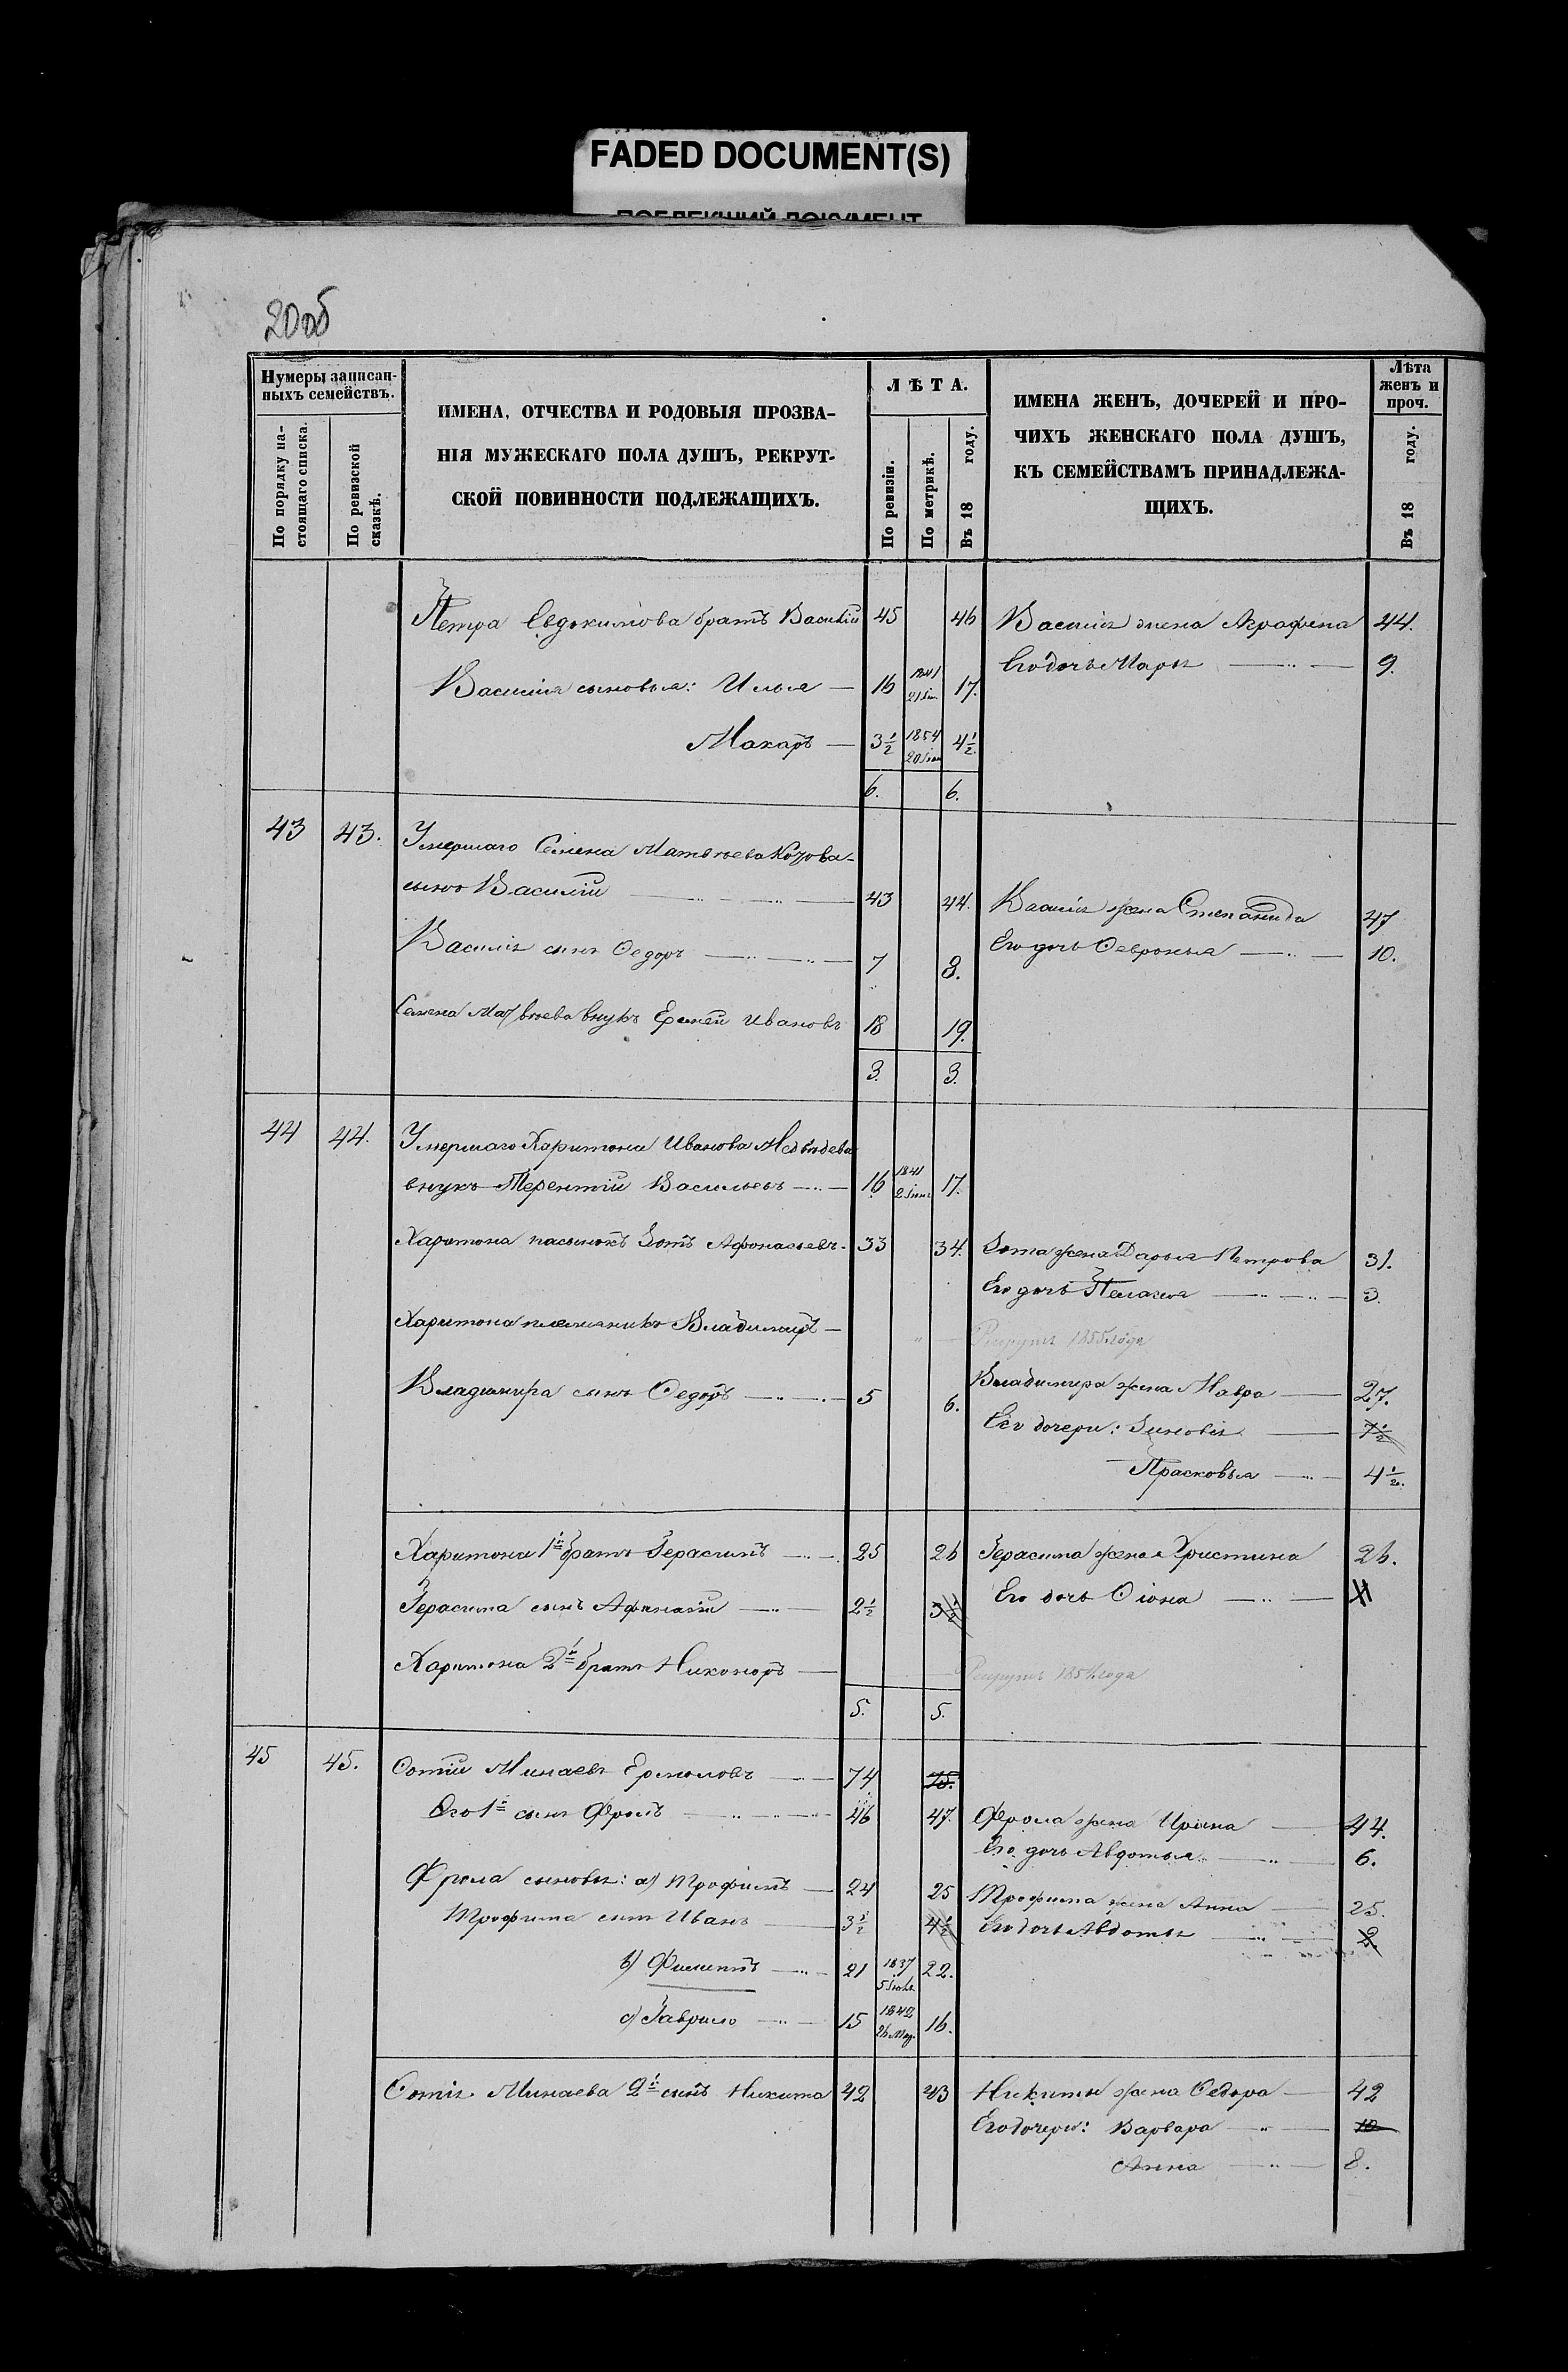 FADED DOCUMENT(S)
20об
Нумеры записан-
ныхъ семействъ.
По порядку на-
стоящаго списка.
По ревизской
сказкѣ.
ИМЕНА, ОТЧЕСТВА И РОДОВЫЯ ПРОЗВА-
НІЯ МУЖЕСКАГО ПОЛА ДУШЪ, РЕКРУТ-
СКОЙ ПОВИННОСТИ ПОДЛЕЖАЩИХЪ.
ЛѢТА.
По ревизіи.
По метрикѣ.
Въ 18 году.
ИМЕНА ЖЕНЪ, ДОЧЕРЕЙ И ПРО-
ЧИХЪ ЖЕНСКАГО ПОЛА ДУШЪ,
КЪ СЕМЕЙСТВАМЪ ПРИНАДЛЕЖА-
ЩИХЪ.
Лѣта
женъ и
проч.
Въ 18 году.
Петра Евдокимова братъ Василій 45 46 Василія жена Аграфена 44.
Его дочь Марья 9.
Василія сыновья: Илья 16 1841 17.
Макаръ 3½ 1854 4½.
6. 6.
43 43. Умершаго Семена Матвѣева
сынъ Василій 43 44. Василія жена Степанида 47
Василія сынъ Ѳедоръ 7 8. Его дочь Ѳевронья 10.
Семена Матвѣева внукъ Ивановъ 18 19.
3. 3.
44 44. Умершаго Харитона Иванова Медвѣдева
внукъ Терентій Васильевъ 16 1841 17.
Харитона пасынокъ Зотъ Афонасьевъ 33 34. Зота жена Дарья Петрова 31.
Его дочь Пелагея 3.
Харитона племянникъ Владимиръ
Рекрутъ 1855 года
Владимира сынъ Ѳедоръ 5 6. Владимира жена Мавра 27.
Его дочери: Зиновія 7½
Прасковья 4½.
Харитона 1й братъ Герасимъ 25 26 Герасима жена Христина 26.
Герасима сынъ Афанасій 2½ 3½ Его дочь
Харитона 2й братъ Никоноръ
Рекрутъ 1854 года
5. 5.
45 45. Фотій Минаевъ Ермоловъ 74 75.
Его 1й сынъ Фролъ 46 47. Фрола жена Ирина 44.
Его дочь Авдотья 6.
Фрола сыновья: а) Трофимъ 24 25 Трофима жена Анна 25.
Трофима сынъ Иванъ 3½ 4½ Его дочь Авдотья 2.
в) Филиппъ 21 1837 22.
с) Гаврило 15 1842 26 Мая 16.
Фотія Минаева 2й сынъ Никита 42 43 Никиты жена Ѳедора 42
Его дочери: Варвара 10
Анна 8.